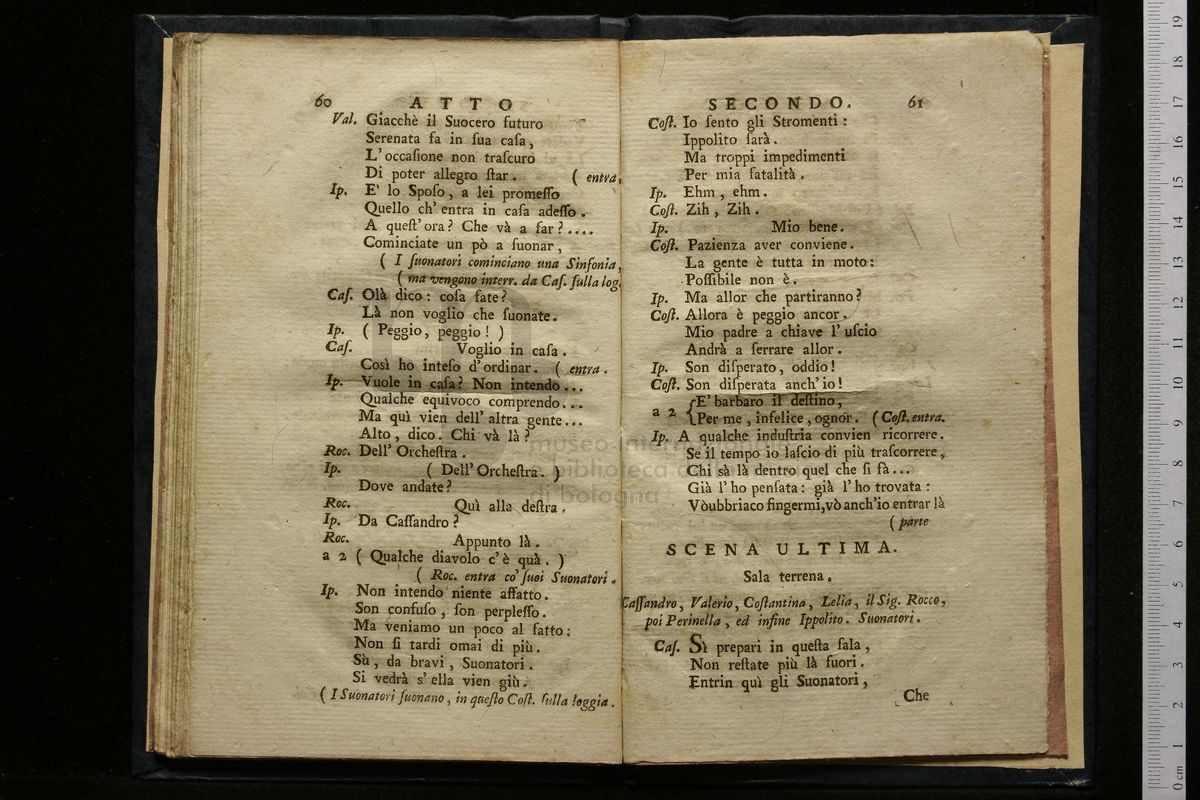 60 ATTO
Val. Giacchè il Suocero futuro
Serenata fa in ſua caſa,
L'occaſione non traſcuro
Di poter allegro ſtar. ( entra.
Ip. E' lo Spoſo, a lei promeſſo
Quello ch'entra in caſa adeſſo.
A queſt'ora? Che và a far?....
Cominciate un pò a ſuonar,
( I ſuonatori cominciano una Sinfonia,
( ma vengono interr. da Caſ. ſulla log.
Caſ. Olà dico: coſa fate?
Là non voglio che ſuonate.
Ip. ( Peggio, peggio! )
Caſ. Voglio in caſa.
Così ho inteſo d'ordinar. ( entra.
Ip. Vuole in caſa? Non intendo...
Qualche equivoco comprendo...
Ma quì vien dell'altra gente...
Alto, dico. Chi và là?
Roc. Dell'Orcheſtra.
Ip. ( Dell'Orcheſtra. )
Dove andate?
Roc. Quì alla deſtra.
Ip. Da Caſſandro?
Roc. Appunto là.
a 2 ( Qualche diavolo c'è quà. )
( Roc. entra co' ſuoi Suonatori.
Ip. Non intendo niente affatto.
Son confuſo, ſon perpleſſo.
Ma veniamo un poco al fatto:
Non ſi tardi omai di più.
Sù, da bravi, Suonatori.
Si vedrà s'ella vien giù.
( I Suonatori ſuonano, in queſto Coſt. ſulla loggia.
SECONDO. 61
Coſt. Io ſento gli Stromenti:
Ippolito ſarà.
Ma troppi impedimenti
Per mia fatalità.
Ip. Ehm, ehm.
Coſt. Zih, Zih.
Ip. Mio bene.
Coſt. Pazienza aver conviene.
La gente è tutta in moto:
Poſſibile non è.
Ip. Ma allor che partiranno?
Coſt. Allora è peggio ancor.
Mio padre a chiave l'uſcio
Andrà a ſerrare allor.
Ip. Son diſperato, oddio!
Coſt. Son diſperata anch'io!
a 2 {E' barbaro il deſtino,
Per me, infelice, ognor. ( Coſt. entra.
Ip. A qualche induſtria convien ricorrere.
Se il tempo io laſcio di più traſcorrere,
Chi sà là dentro quel che ſi fà...
Già l'ho penſata: già l'ho trovata:
Vò ubbriaco fingermi, vò anch'io entrar là
( parte
SCENA ULTIMA.
Sala terrena.
Caſſandro, Valerio, Coſtantina, Lelia, il Sig. Rocco,
poi Perinella, ed infine Ippolito. Suonatori.
Caſ. Sì prepari in queſta ſala,
Non reſtate più là fuori.
Entrin quì gli Suonatori,
Che
museo internazionale
e biblioteca
di bologna
0 cm 1 2 3 4 5 6 7 8 9 10 11 12 13 14 15 16 17 18 19